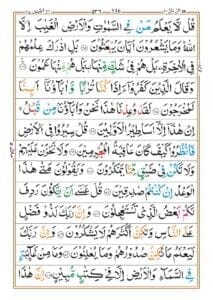 قُلْ لَّا يَعْلَمُ مَنْ فِي السَّمٰوٰتِ وَالْاَرْضِ الْغَيْبَ اِلَّا
اللّٰهُ وَمَا يَشْعُرُوْنَ اَيَّانَ يُبْعَثُوْنَ بَلِ ادّٰرَكَ عِلْمُهُمْ
فِي الْاٰخِرَةِ بَلْ هُمْ فِيْ شَكٍّ مِّنْهَا بَلْ هُمْ مِّنْهَا عَمُوْنَ
وَقَالَ الَّذِيْنَ كَفَرُوْٓا ءَاِذَا كُنَّا تُرٰبًا وَّاٰبَآؤُنَآ اَئِنَّا
لَمُخْرَجُوْنَ لَقَدْ وُعِدْنَا هٰذَا نَحْنُ وَاٰبَآؤُنَا مِنْ قَبْلُ
اِنْ هٰذَآ اِلَّآ اَسَاطِيْرُ الْاَوَّلِيْنَ قُلْ سِيْرُوْا فِي الْاَرْضِ
فَانْظُرُوْا كَيْفَ كَانَ عَاقِبَةُ الْمُجْرِمِيْنَ وَلَا تَحْزَنْ عَلَيْهِمْ
وَلَا تَكُنْ فِيْ ضَيْقٍ مِّمَّا يَمْكُرُوْنَ وَيَقُوْلُوْنَ مَتٰى هٰذَا
الْوَعْدُ اِنْ كُنْتُمْ صٰدِقِيْنَ قُلْ عَسٰٓى اَنْ يَّكُوْنَ رَدِفَ
لَكُمْ بَعْضُ الَّذِيْ تَسْتَعْجِلُوْنَ وَاِنَّ رَبَّكَ لَذُوْ فَضْلٍ
عَلَى النَّاسِ وَلٰكِنَّ اَكْثَرَهُمْ لَا يَشْكُرُوْنَ وَاِنَّ رَبَّكَ
لَيَعْلَمُ مَا تُكِنُّ صُدُوْرُهُمْ وَمَا يُعْلِنُوْنَ وَمَا مِنْ غَآئِبَةٍ
فِي السَّمَآءِ وَالْاَرْضِ اِلَّا فِيْ كِتٰبٍ مُّبِيْنٍ اِنَّ هٰذَا